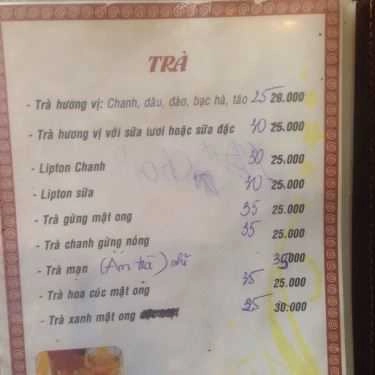 TRÀ
- Trà hương vị: Chanh, dâu, đào, bạc hà, táo 25 20.000
- Trà hương vị với sữa tươi hoặc sữa đặc 40 25.000
- Lipton Chanh 30 25.000
- Lipton sữa 40 25.000
- Trà gừng mật ong 35 25.000
- Trà chanh gừng nóng 35 25.000
- Trà mạn (Ấm trà) 35.000
- Trà hoa cúc mật ong 35 25.000
- Trà xanh mật ong 35 30.000